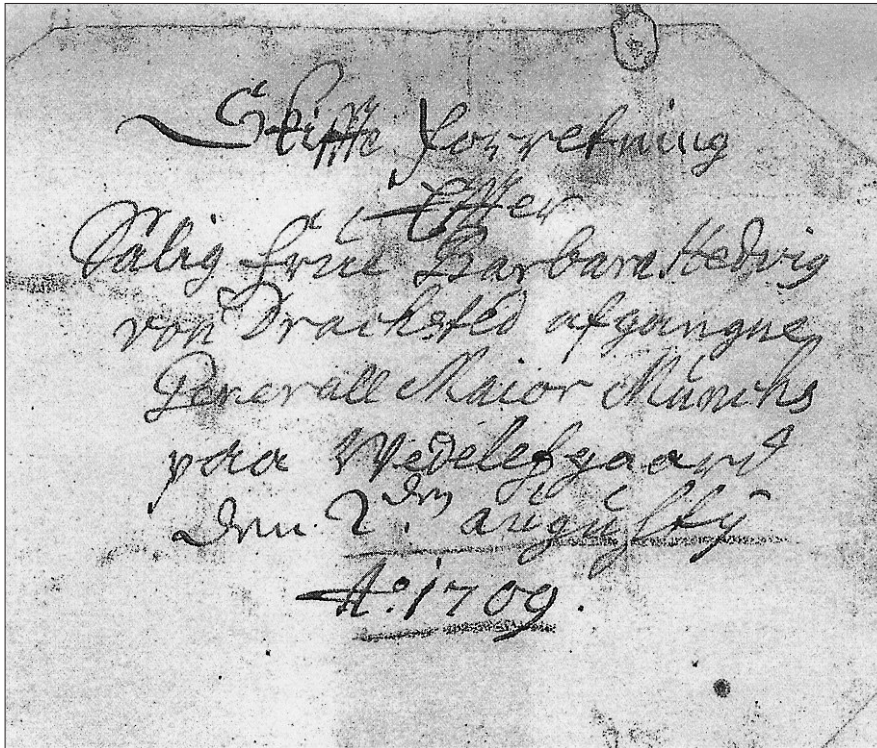 Skiffte forretning
Effter
Sälig Frue Barbara Hedvig
von Drachsted afgangne
Generall Maior Münichs
paa Wedelefzgaard
den 2den augusty
Ao. 1709.